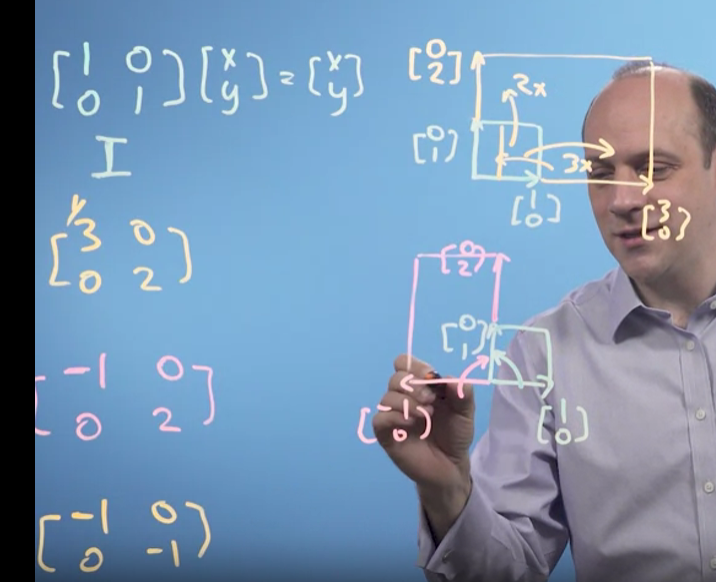 [1 0
0 1] [x
y] = [x
y]
I
[1/3 0
0 2]
[-1 0
0 2]
[-1 0
0 -1]
[0
2]
2x
[0
1]
3x
[1
0]
[3
0]
[0
2]
[0
1]
[-1
0]
[1
0]